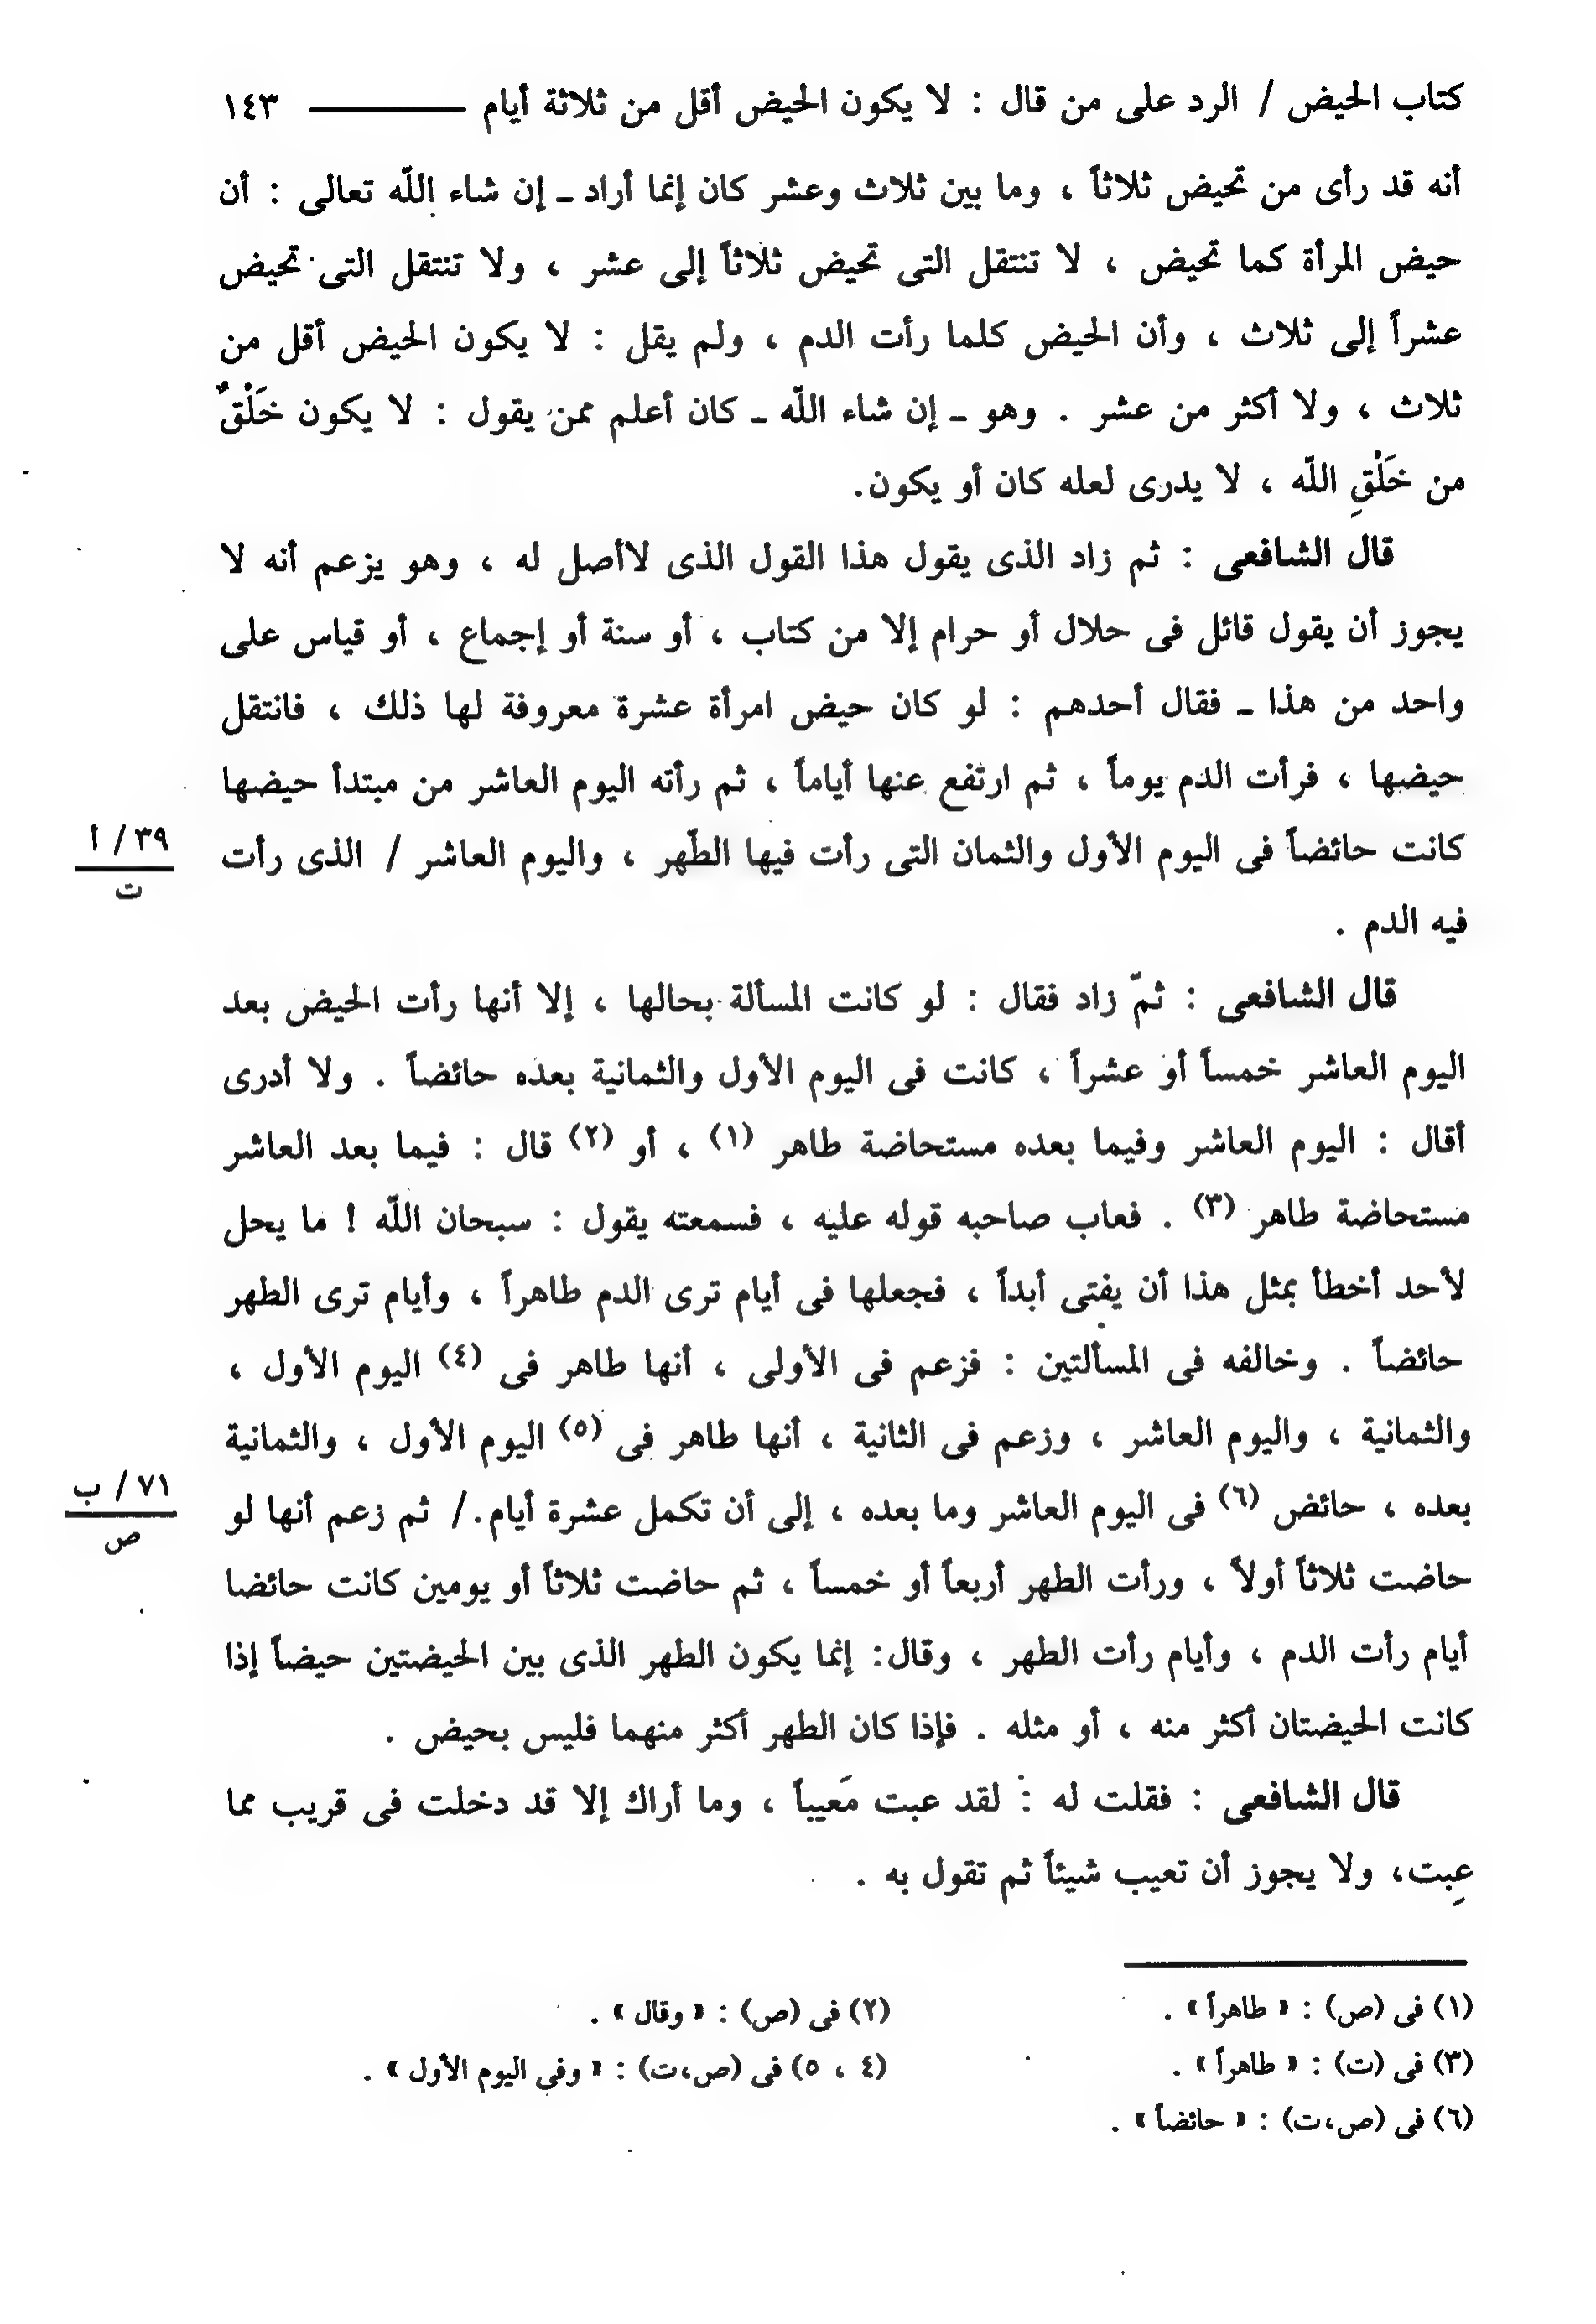 كتاب الحيض / الرد على من قال : لا يكون الحيض أقل من ثلاثة أيام ــــــــــ ١٤٣
أنه قد رأى من تحيض ثلاثاً ، وما بين ثلاث وعشر كان إنما أراد ـ إن شاء الله تعالى : أن
حيض المرأة كما تحيض ، لا تنتقل التى تحيض ثلاثاً إلى عشر ، ولا تنتقل التى تحيض
عشراً إلى ثلاث ، وأن الحيض كلما رأت الدم ، ولم يقل : لا يكون الحيض أقل من
ثلاث ، ولا أكثر من عشر . وهو ـ إن شاء الله ـ كان أعلم ممن يقول : لا يكون خَلْقٌ
من خَلْقِ الله ، لا يدرى لعله كان أو يكون.
قال الشافعى : ثم زاد الذى يقول هذا القول الذى لاأصل له ، وهو يزعم أنه لا
يجوز أن يقول قائل فى حلال أو حرام إلا من كتاب ، أو سنة أو إجماع ، أو قياس على
واحد من هذا ـ فقال أحدهم : لو كان حيض امرأة عشرة معروفة لها ذلك ، فانتقل
حيضها ، فرأت الدم يوماً ، ثم ارتفع عنها أياماً ، ثم رأته اليوم العاشر من مبتدأ حيضها
كانت حائضاً فى اليوم الأول والثمان التى رأت فيها الطّهر ، واليوم العاشر / الذى رأت
٣٩ / أ
ت
فيه الدم .
قال الشافعى : ثمّ زاد فقال : لو كانت المسألة بحالها ، إلا أنها رأت الحيض بعد
اليوم العاشر خمساً أو عشراً ، كانت فى اليوم الأول والثمانية بعده حائضاً . ولا أدرى
أقال : اليوم العاشر وفيما بعده مستحاضة طاهر (١) ، أو (٢) قال : فيما بعد العاشر
مستحاضة طاهر (٣) . فعاب صاحبه قوله عليه ، فسمعته يقول : سبحان الله ! ما يحل
لأحد أخطأ بمثل هذا أن يفتى أبداً ، فجعلها فى أيام ترى الدم طاهراً ، وأيام ترى الطهر
حائضاً . وخالفه فى المسألتين : فزعم فى الأولى ، أنها طاهر فى (٤) اليوم الأول ،
والثمانية ، واليوم العاشر ، وزعم فى الثانية ، أنها طاهر فى (٥) اليوم الأول ، والثمانية
بعده ، حائض (٦) فى اليوم العاشر وما بعده ، إلى أن تكمل عشرة أيام ./ ثم زعم أنها لو
٧١ / ب
ص
حاضت ثلاثاً أولاً ، ورأت الطهر أربعاً أو خمساً ، ثم حاضت ثلاثاً أو يومين كانت حائضا
أيام رأت الدم ، وأيام رأت الطهر ، وقال: إنما يكون الطهر الذى بين الحيضتين حيضاً إذا
كانت الحيضتان أكثر منه ، أو مثله . فإذا كان الطهر أكثر منهما فليس بحيض .
قال الشافعى : فقلت له : لقد عبت مَعيباً ، وما أراك إلا قد دخلت فى قريب مما
عِبت، ولا يجوز أن تعيب شيئاً ثم تقول به .
(١) فى (ص) : « طاهراً » .
(٢) فى (ص) : « وقال » .
(٣) فى (ت) : « طاهراً » .
(٤ ، ٥) فى (ص،ت) : « وفى اليوم الأول » .
(٦) فى (ص،ت) : « حائضاً » .